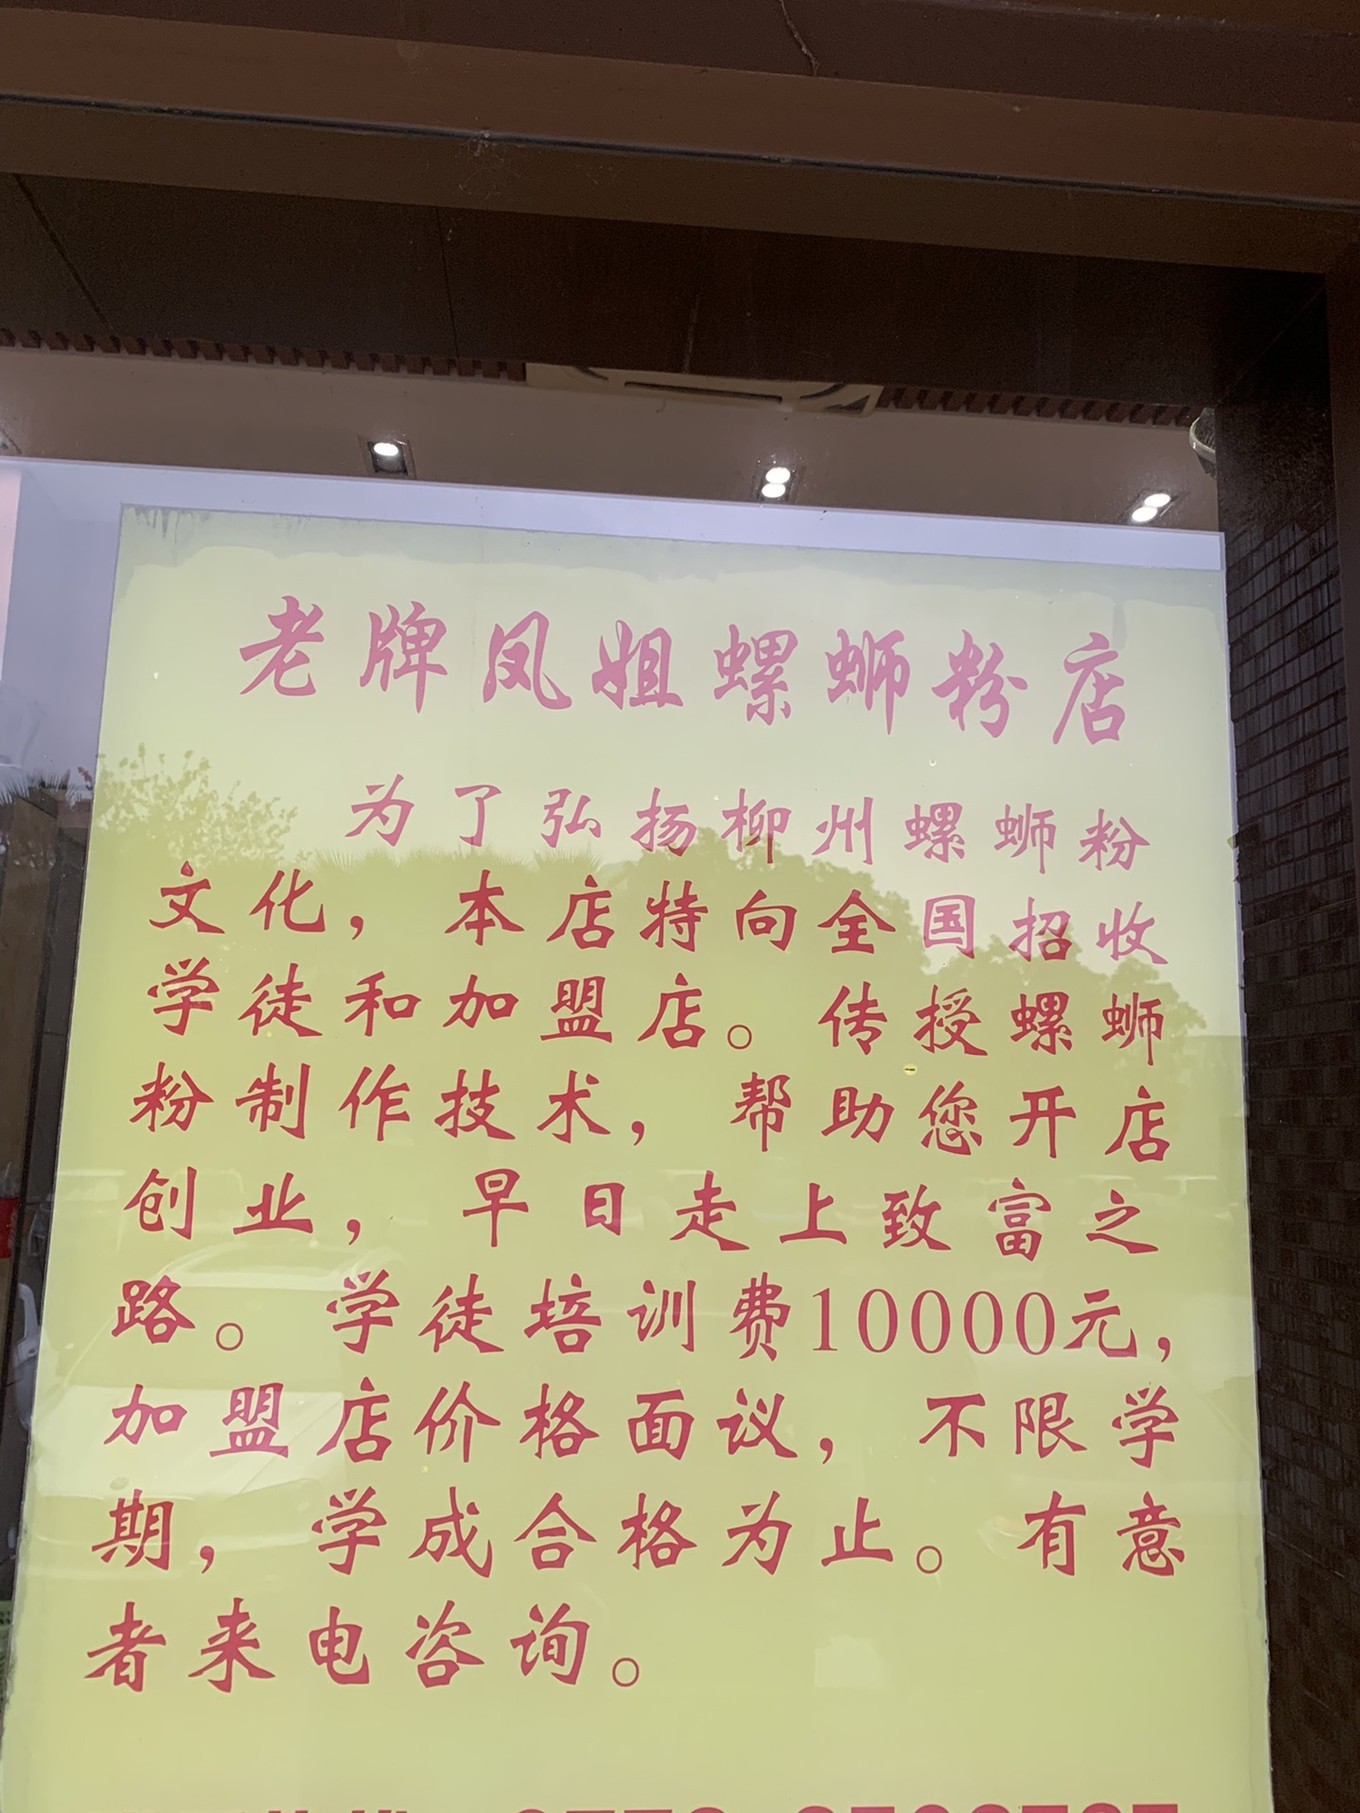 老牌凤姐螺蛳粉店
为了弘扬柳州螺蛳粉
文化，本店特向全国招收
学徒和加盟店。传授螺蛳
粉制作技术，帮助您开店
创业，早日走上致富之
路。学徒培训费10000元，
加盟店价格面议，不限学
期，学成合格为止。有意
者来电咨询。